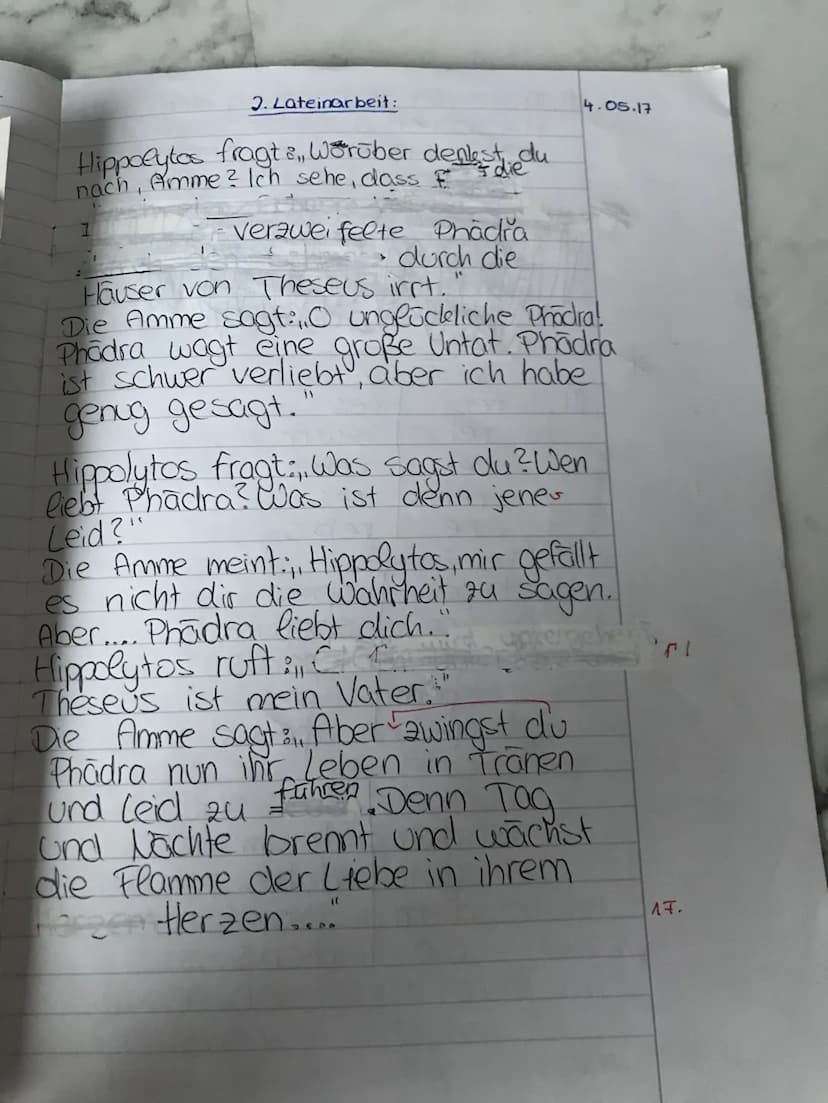 2. Lateinarbeit:
4.05.17
Hippolytos fragt: „Worüber denkst du
nach, Amme? Ich sehe, dass die
verzweifelte Phädra
durch die
Häuser von Theseus irrt."
Die Amme sagt: „O unglückliche Phädra!
Phädra wagt eine große Untat. Phädra
ist schwer verliebt, aber ich habe
genug gesagt."
Hippolytos fragt: „Was sagst du? Wen
liebt Phädra? Was ist denn jenes
Leid?"
Die Amme meint: „Hippolytos, mir gefällt
es nicht dir die Wahrheit zu sagen.
Aber.... Phädra liebt dich."
Hippolytos ruft: „
Theseus ist mein Vater."
Die Amme sagt: „Aber zwingst du
Phädra nun ihr Leben in Tränen
und Leid zu führen. Denn Tag
und Nächte brennt und wächst
die Flamme der Liebe in ihrem
Herzen...."
1F.